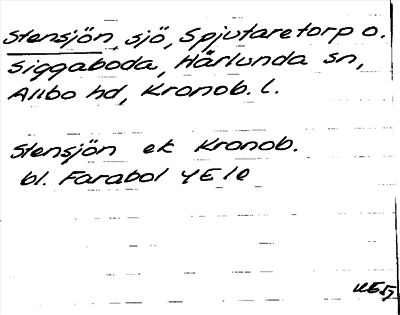 Stensjön, sjö, Spjutaretorp o.
Siggaboda, Härlunda sn,
Allbo hd, Kronob. l.
Stensjön ek Kronob.
bl. Farabol 4E 1e